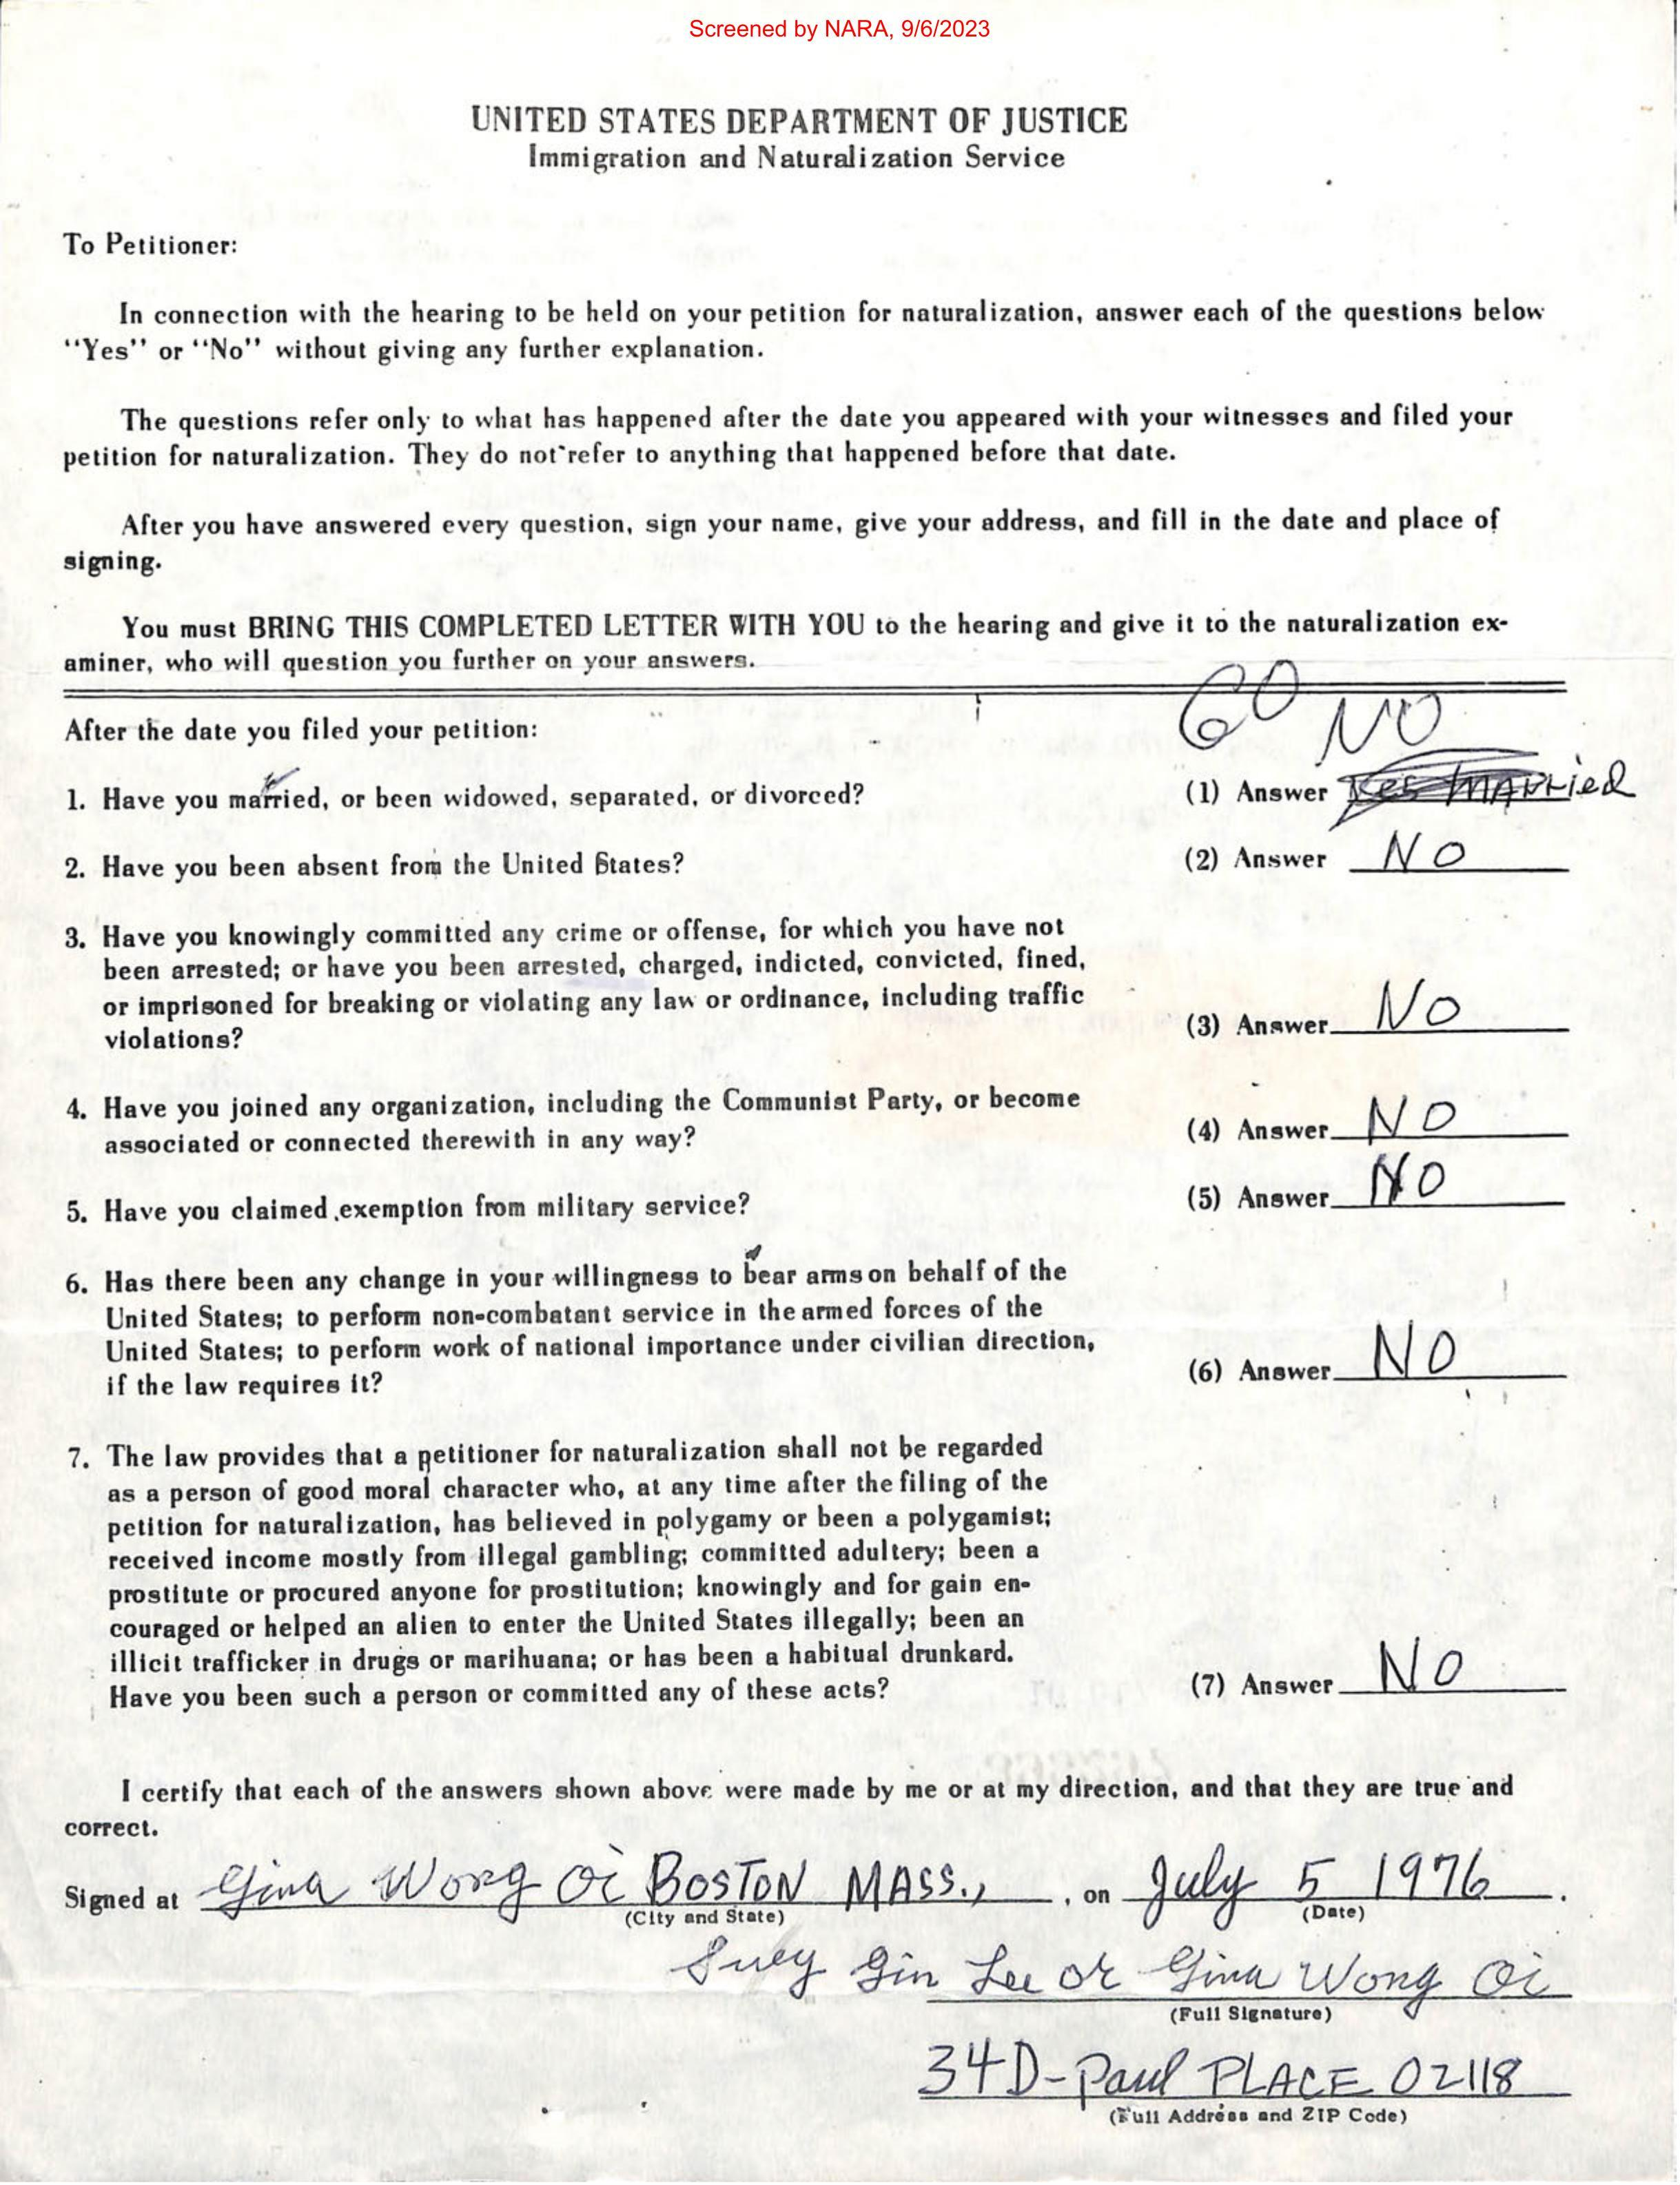 Screened by NARA, 9/6/2023
UNITED STATES DEPARTMENT OF JUSTICE
Immigration and Naturalization Service
To Petitioner:
In connection with the hearing to be held on your petition for naturalization, answer each of the questions below
"Yes" or "No" without giving any further explanation.
The questions refer only to what has happened after the date you appeared with your witnesses and filed your
petition for naturalization. They do not refer to anything that happened before that date.
After you have answered every question, sign your name, give your address, and fill in the date and place of
signing.
You must BRING THIS COMPLETED LETTER WITH YOU to the hearing and give it to the naturalization ex-
aminer, who will question you further on your answers.
After the date you filed your petition:
NO
1. Have you married, or been widowed, separated, or divorced? (1) Answer Yes MARRied
2. Have you been absent from the United States? (2) Answer NO
3. Have you knowingly committed any crime or offense, for which you have not
been arrested; or have you been arrested, charged, indicted, convicted, fined,
or imprisoned for breaking or violating any law or ordinance, including traffic
violations? (3) Answer NO
4. Have you joined any organization, including the Communist Party, or become
associated or connected therewith in any way? (4) Answer NO
5. Have you claimed exemption from military service? (5) Answer NO
6. Has there been any change in your willingness to bear arms on behalf of the
United States; to perform non-combatant service in the armed forces of the
United States; to perform work of national importance under civilian direction,
if the law requires it? (6) Answer NO
7. The law provides that a petitioner for naturalization shall not be regarded
as a person of good moral character who, at any time after the filing of the
petition for naturalization, has believed in polygamy or been a polygamist;
received income mostly from illegal gambling; committed adultery; been a
prostitute or procured anyone for prostitution; knowingly and for gain en-
couraged or helped an alien to enter the United States illegally; been an
illicit trafficker in drugs or marihuana; or has been a habitual drunkard.
Have you been such a person or committed any of these acts? (7) Answer NO
I certify that each of the answers shown above were made by me or at my direction, and that they are true and
correct.
Signed at Gina Wong Oi BOSTON MASS., , on July 5 1976.
(City and State) (Date)
Suey Gin Lee or Gina Wong Oi
(Full Signature)
34D-Paul PLACE 02118
(Full Address and ZIP Code)